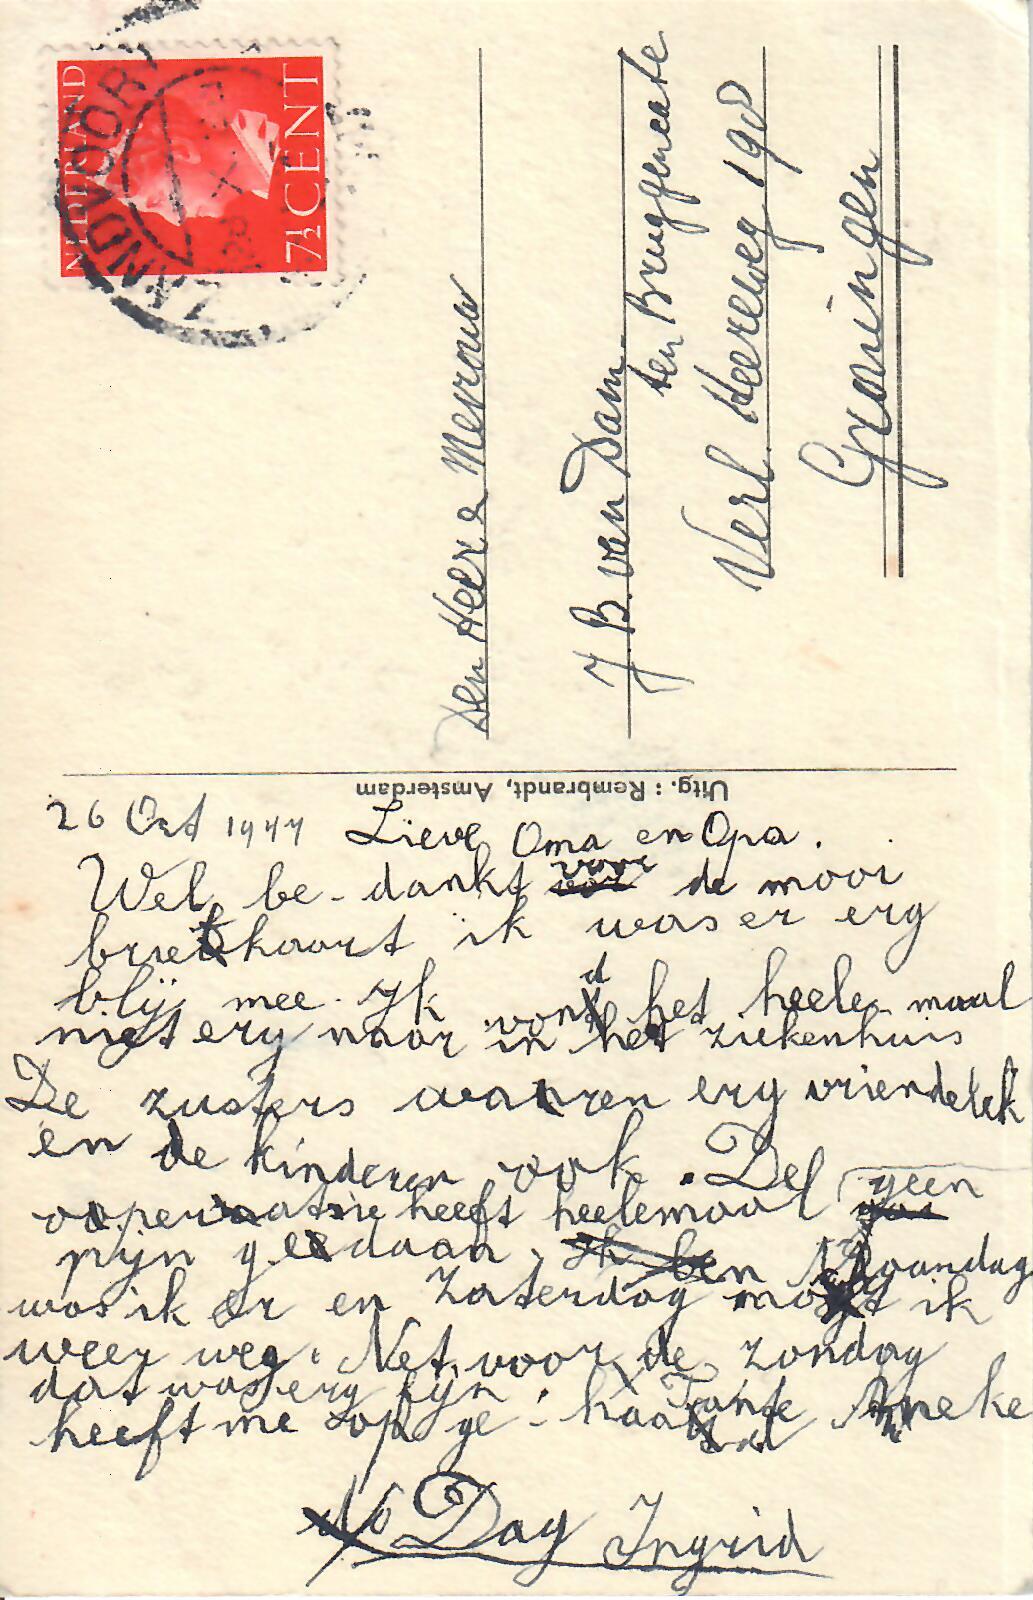 NEDERLAND
7½ CENT
ZANDVOORT
Den Heer & Mevrouw
J. B. van Dam.
ten Bruggencate
Verl. Heereweg 198
Groningen
Uitg.: Rembrandt, Amsterdam
26 Oct 1944 Lieve Oma en Opa.
Wel be-dankt voor de mooi
briefkaart ik was er erg
blij mee. Ik vond het heele maal
niet erg naar in het ziekenhuis
De zusters waren erg vriendelek
en de kinderen ook. Del geen
operatie heeft heelemaal
pijn gedaan. Ik ben Maandag
was ik er en Zaterdag mogt ik
weer weg. Net voor de zondag
dat was erg fijn. Tante Anneke
heeft me op ge-haald
Dag Ingrid